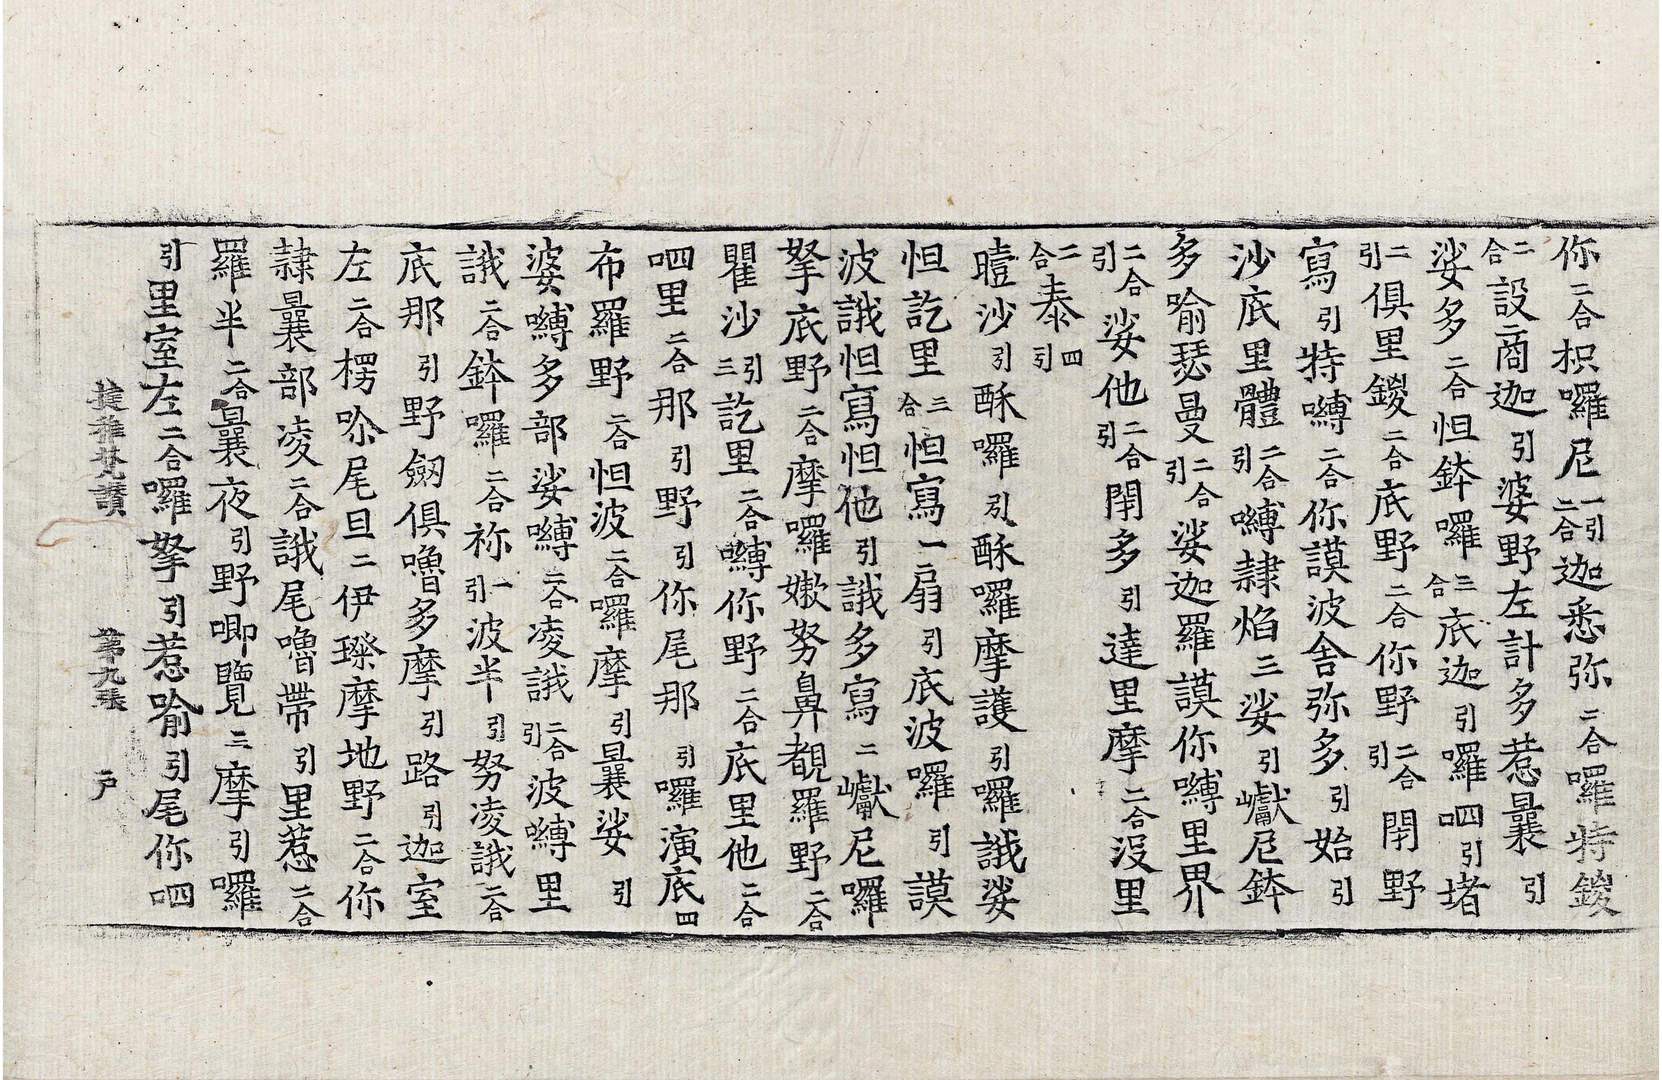 你二合枳囉尼一引二合迦悉弥二合羅特鍐
二合設商迦引婆野左計多惹曩引
娑多二合怛鉢囉三合底迦引囉呬引堵
二引俱里鍐二合底野二合你野二合引閉野
寫引特嚩二合你謨波舍弥多引始引
沙底里體二合引嚩隷焰三娑引巘尼鉢
多喻瑟曼二合引娑迦羅謨你嚩里界
二合引娑他二合引閉多引達里摩二合沒里
二合桼四引
曀沙引酥囉引酥囉摩護引囉誐娑
怛訖里三合怛寫一二扇引底波囉引謨
波誐怛寫怛他引誐多寫二巘尼囉
拏底野二合摩囉嫰努鼻覩羅野二合
瞿沙引三訖里二合嚩你野二合底里他二合
呬里二合那引野引你尾那引囉演底四
布羅野二合怛波二合囉摩引曩娑引
婆嚩多部娑嚩二合凌誐二合引波嚩里
誐二合鉢囉二合祢一引波半引努凌誐二合
底那引野劒俱嚕多摩引路引迦室
左二合楞哛尾旦二伊璨摩地野二合你
隷曩部凌二合誐尾嚕帶引里惹二合
羅半二合曩夜引野唧覽三摩引囉
引里室左二合囉拏引惹喻引尾你呬
揵稚梵讃　第九張　户